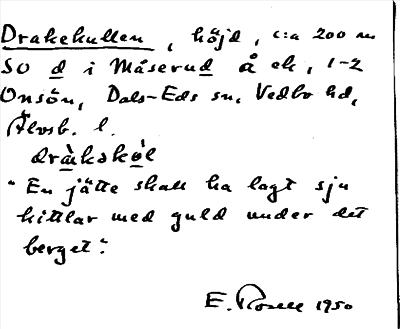 Drakekullen, höjd, c:a 200 m
SO d i Måserud å ek, 1-2
Onsön, Dals-Eds sn, Vedbo hd,
Älvsb. l.
dràkəkòl
"En jätte skall ha lagt sju
kittlar med guld under det
berget".
E. Rosell 1950